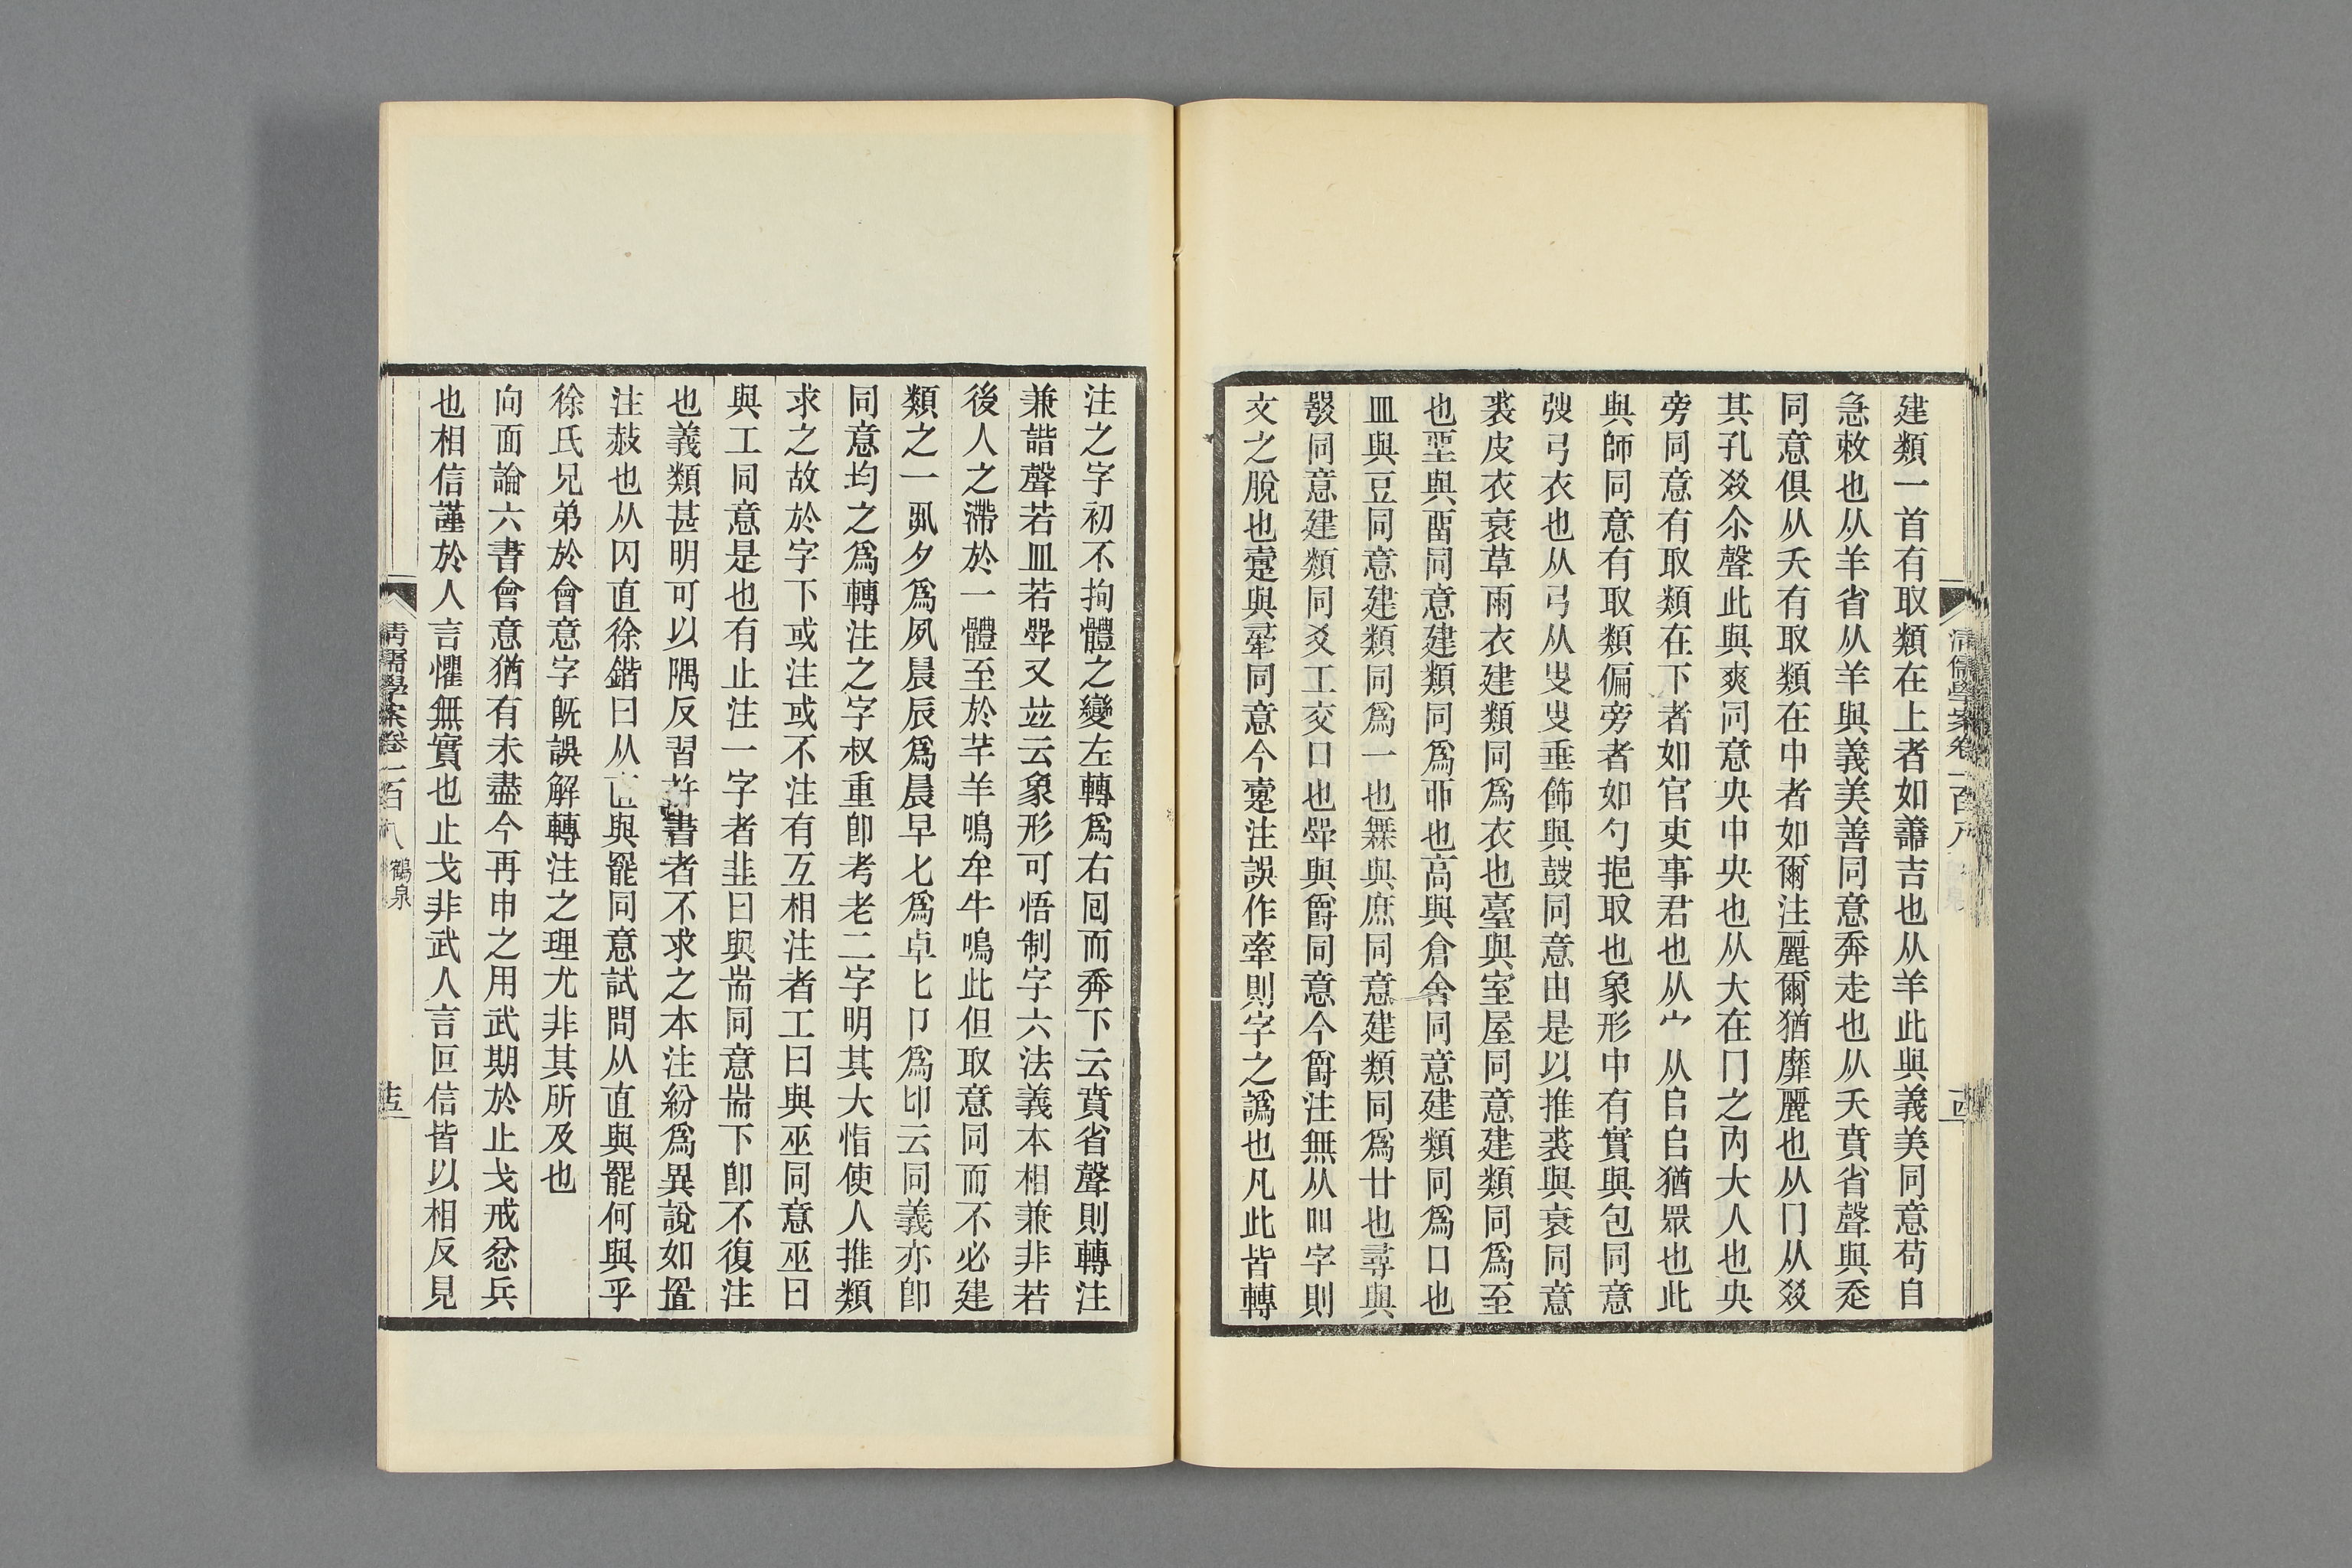 建類一首有取類在上者如譱吉也从羊此與義美同意茍自
急敕也从羊省从羊與義美善同意奔走也从夭賁省聲與走
同意俱从夭有取類在中者如爾注麗爾猶靡麗也从冂从㸚
其孔㸚尒聲此與爽同意央中央也从大在冂之內大人也央
旁同意有取類在下者如官吏事君也从宀从𠂤𠂤猶眾也此
與師同意有取類偏旁者如勺挹取也象形中有實與包同意
弢弓衣也从弓从㞢㞢垂飾與鼓同意由是以推裘與衰同意
裘皮衣衰草雨衣建類同爲衣也臺與室屋同意建類同爲至
也垔與畱同意建類同爲襾也高與倉舍同意建類同爲口也
皿與豆同意建類同爲一也橆與庶同意建類同爲廿也尋與
㗊同意建類同爻工交口也斝與爵同意今爵注無从吅字則
文之脫也疐與牽同意今疐注誤作牽則字之譌也凡此皆轉
注之字初不拘體之變左轉爲右囘而奔下云賁省聲則轉注
兼諧聲若皿若斝又竝云象形可悟制字六法義本相兼非若
後人之滯於一體至於芈羊鳴牟牛鳴此但取意同而不必建
類之一夙夕爲夙晨辰爲晨早匕爲卓匕卪爲卬云同義亦卽
同意均之爲轉注之字叔重卽考老二字明其大恉使人推類
求之故於字下或注或不注有互相注者工曰與巫同意巫曰
與工同意是也有止注一字者韭曰與耑同意耑下卽不復注
也義類甚明可以隅反習許書者不求之本注紛爲異說如置
注赦也从网直徐鍇曰从直與罷同意試問从直與罷何與乎
徐氏兄弟於會意字旣誤解轉注之理尤非其所及也
向面論六書會意猶有未盡今再申之用武期於止戈戒忿兵
也相信謹於人言懼無實也止戈非武人言叵信皆以相反見
清儒學案卷一百八 鶴泉